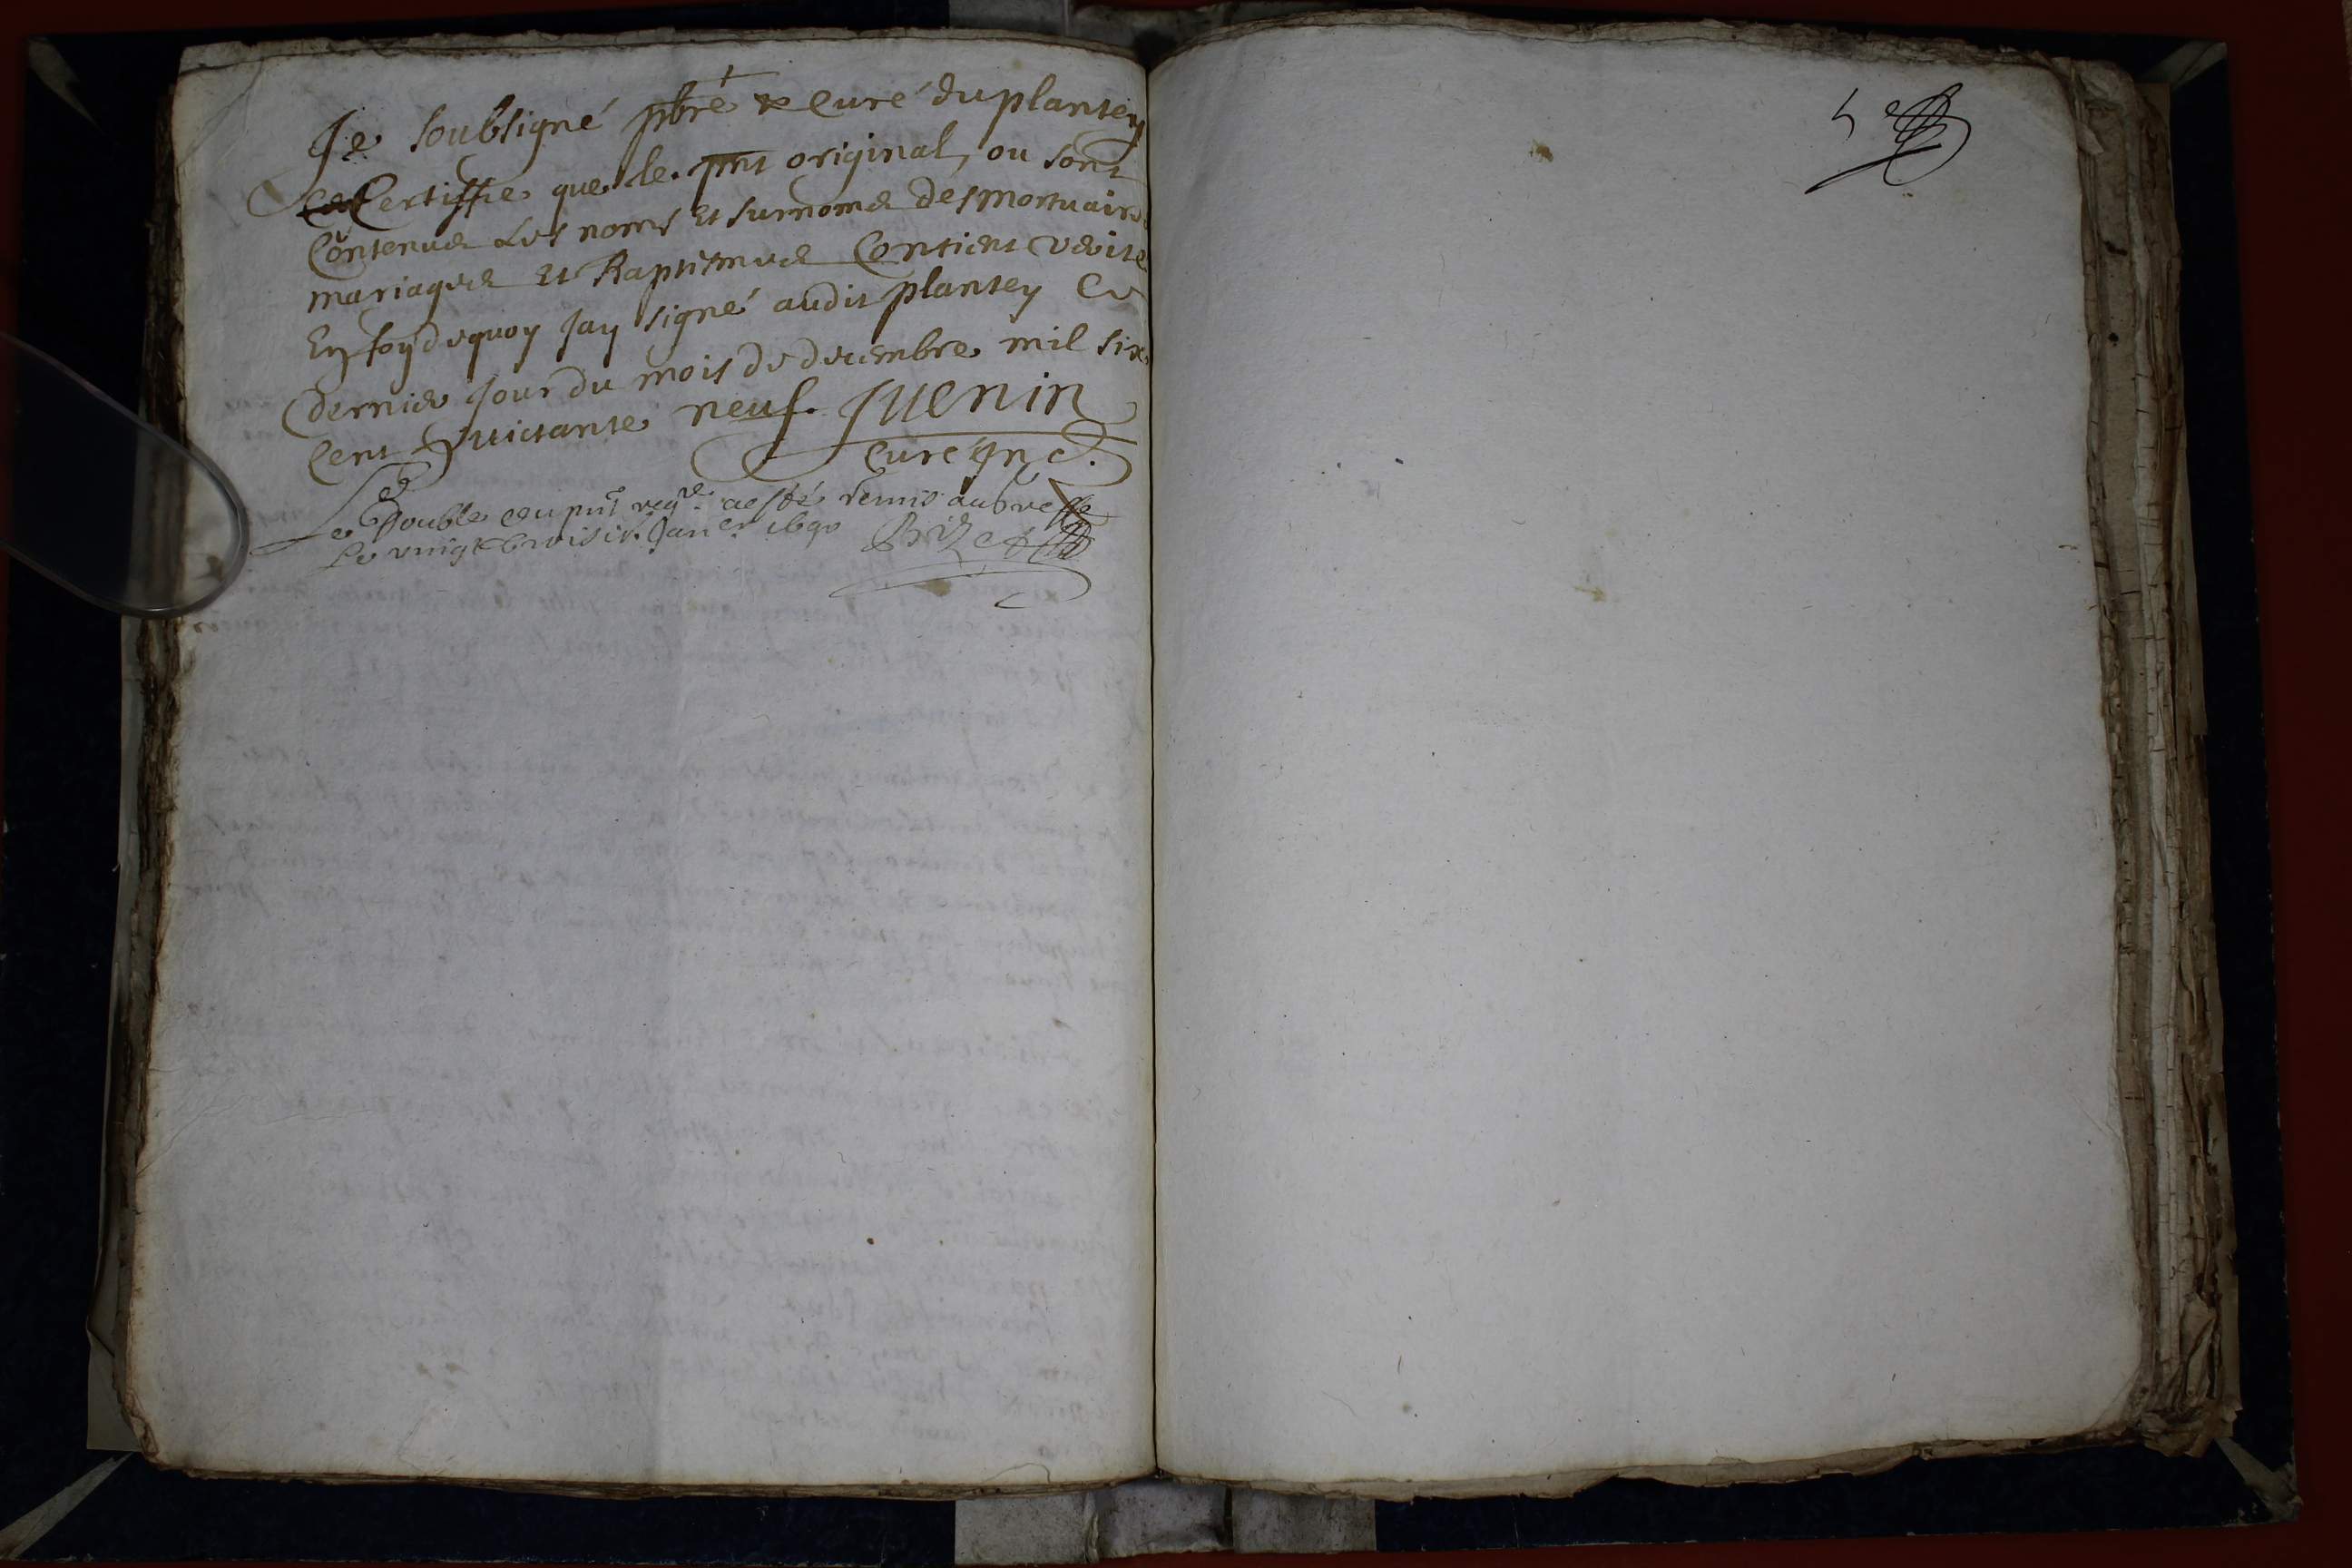 Je soubsigné pbre & Curé du plantey
Certiffie que le pnt original, ou sont
Contenus Les noms Et surnoms des mortuaires
mariages Et Baptismes Contient verité
En foy de quoy Jay signé audit plantey Ce
dernier Jour du mois de decembre mil six
Cent huictante neuf. Juenin
Curé
Le double du pnt regre a esté remis au greffe
Le vingt troisie. Janer 1690